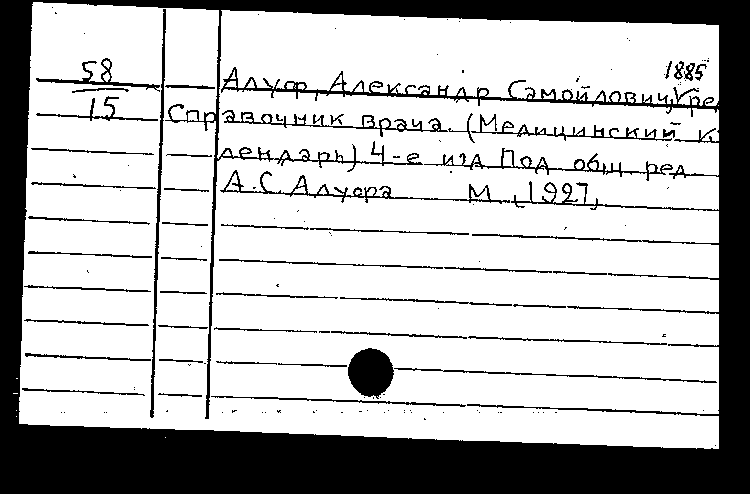 1885
58
Алуф, Александр Самойлович, ред
15
Справочник врача. (Медицинский к
лендарь) 4-е изд Под общ. ред
А.С. Алуфа М., 1927,